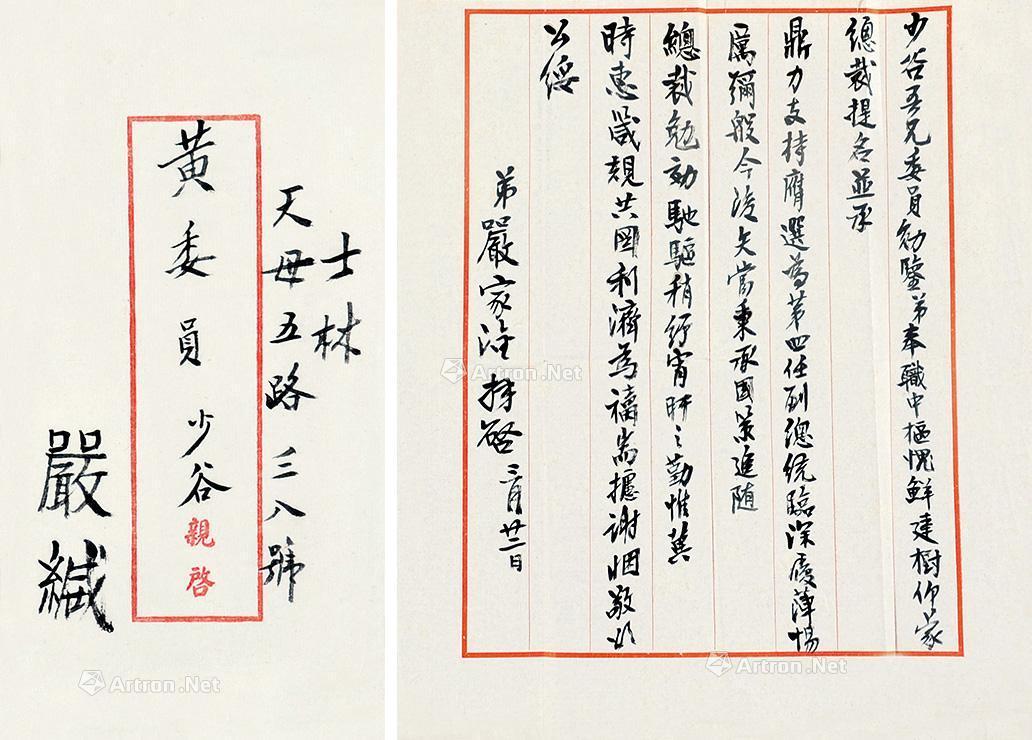 士林
天母五路三八號
黃委員 少谷 親啓
嚴緘
少谷吾兄委員勛鑒弟奉職中樞愧鮮建樹仰蒙
總裁提名並承
鼎力支持膺選為第四任副總統臨深履薄惕
厲彌殷今後矢當秉承國策進隨
總裁勉効馳驅稍紓宵旰之勤惟冀
時惠箴規共圖利濟為禱耑攄謝悃敬頌
公綏
弟嚴家淦拜啓 三月廿二日
Artron.Net
Artron.Net
Artron.Net
Artron.Net